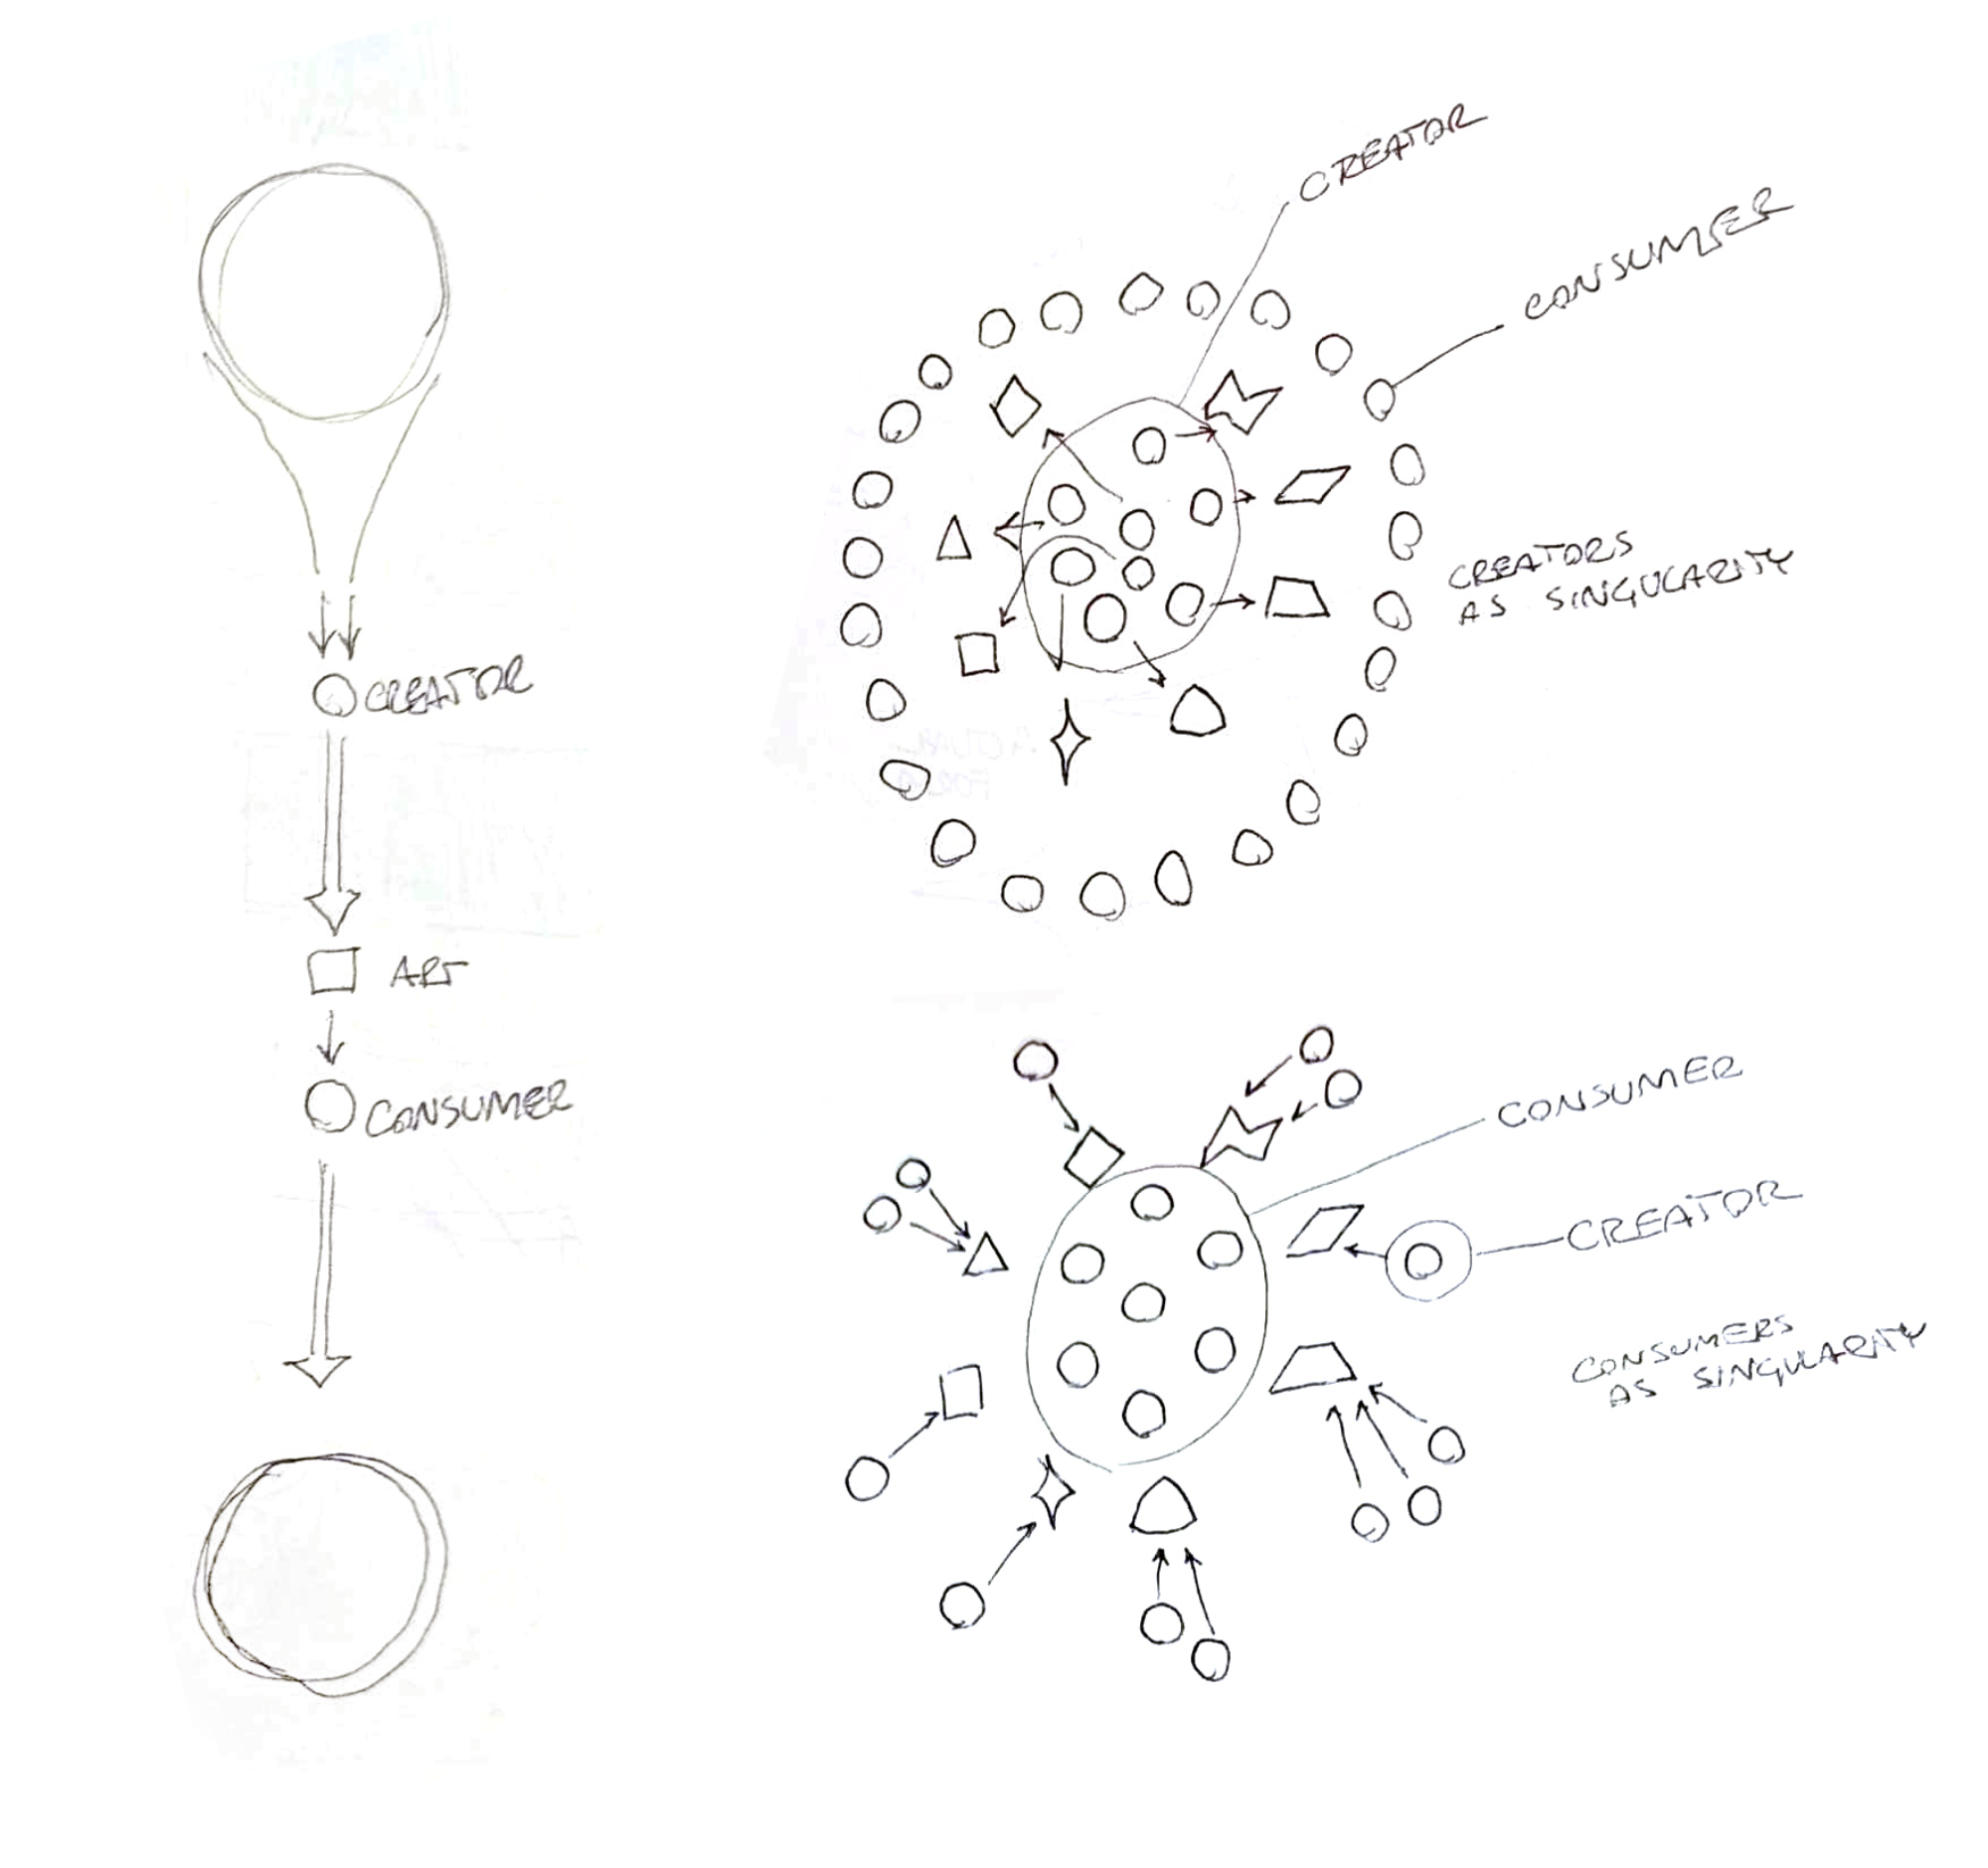 CREATOR
ART
CONSUMER
CREATOR
CONSUMER
CREATORS
AS SINGULARITY
CONSUMER
CREATOR
CONSUMERS
AS SINGULARITY